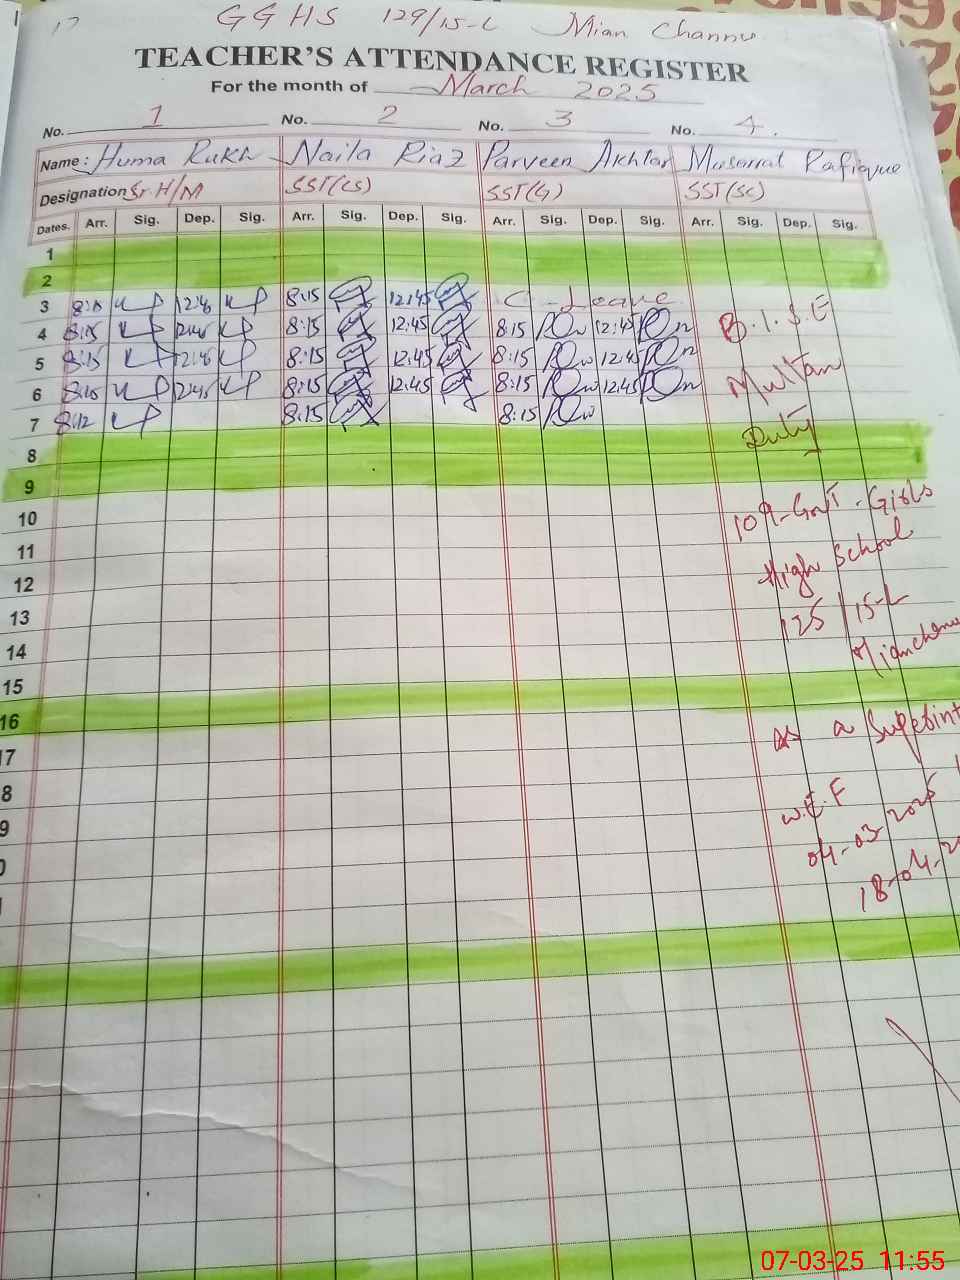 17 GGHS 129/15-L Mian Channu
TEACHER'S ATTENDANCE REGISTER
For the month of March 2025
No. 1 No. 2 No. 3 No. 4.
Name: Huma Rukh Naila Riaz Parveen Akhtar Musarrat Rafique
Designation Sr. H/M SST(CS) SST(G) SST(SC)
Dates. Arr. Sig. Dep. Sig. Arr. Sig. Dep. Sig. Arr. Sig. Dep. Sig. Arr. Sig. Dep. Sig.
1
2
3 8:15 12:45 8:15 12:45 C-Leave
4 8:15 12:45 8:15 12:45 8:15 12:45 B.I.S.E
5 8:15 12:45 8:15 12:45 8:15 12:45
6 8:15 12:45 8:15 12:45 8:15 12:45 Multan
7 8:12 8:15 8:15 Duty
8
9
10 109-Govt. Girls
11
12 High School
13 125/15-L
14 Mianchannu
15
16
17 as a Superint
8
9 w.E.F
0 04-03-2025
18-04-2
07-03-25 11:55